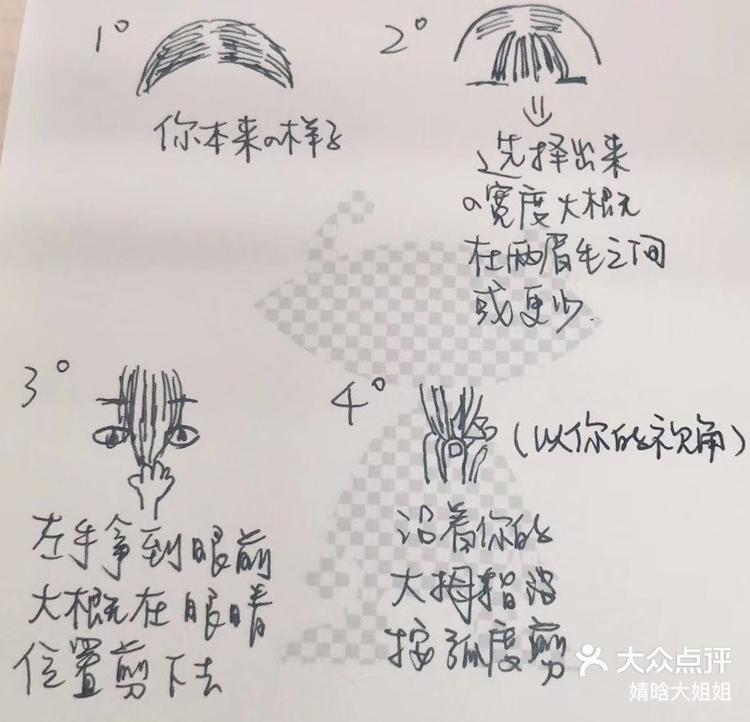 1°
你本来の样子
2°
选择出来
の宽度大概
在两眉毛之间
或更少.
3°
左手拿到眼前
大概在眼睛
位置剪下去
4°
(以你的视角)
沿着你的
大拇指
按弧度剪
大众点评
婧晗大姐姐